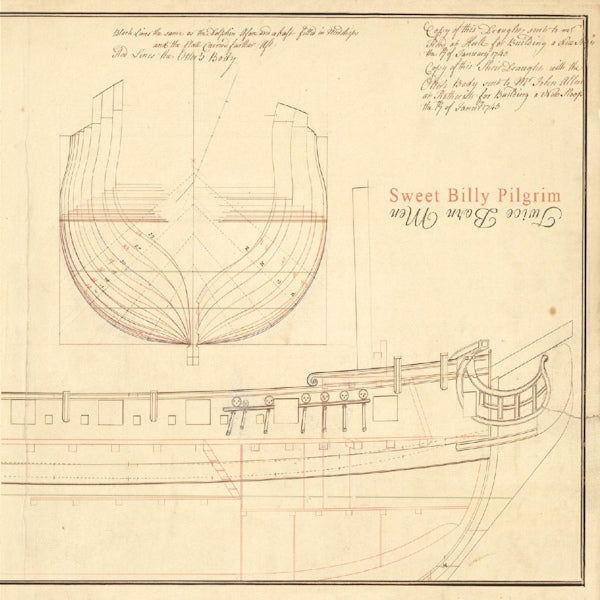 Black Lines the same as the Dolphin Afore and abaft filled in Midships
and the Stem Carried farther Aft
Red Lines the Otter's Body
Copy of this Draught sent to mr
at for Building a Sloop
the of January 1743
Copy of this Sheer Draught with the
Otter's Body sent to Mr John Allin
at Rotherith for Building a New Sloop
the of Janry 1743
Sweet Billy Pilgrim
Twice Born Men